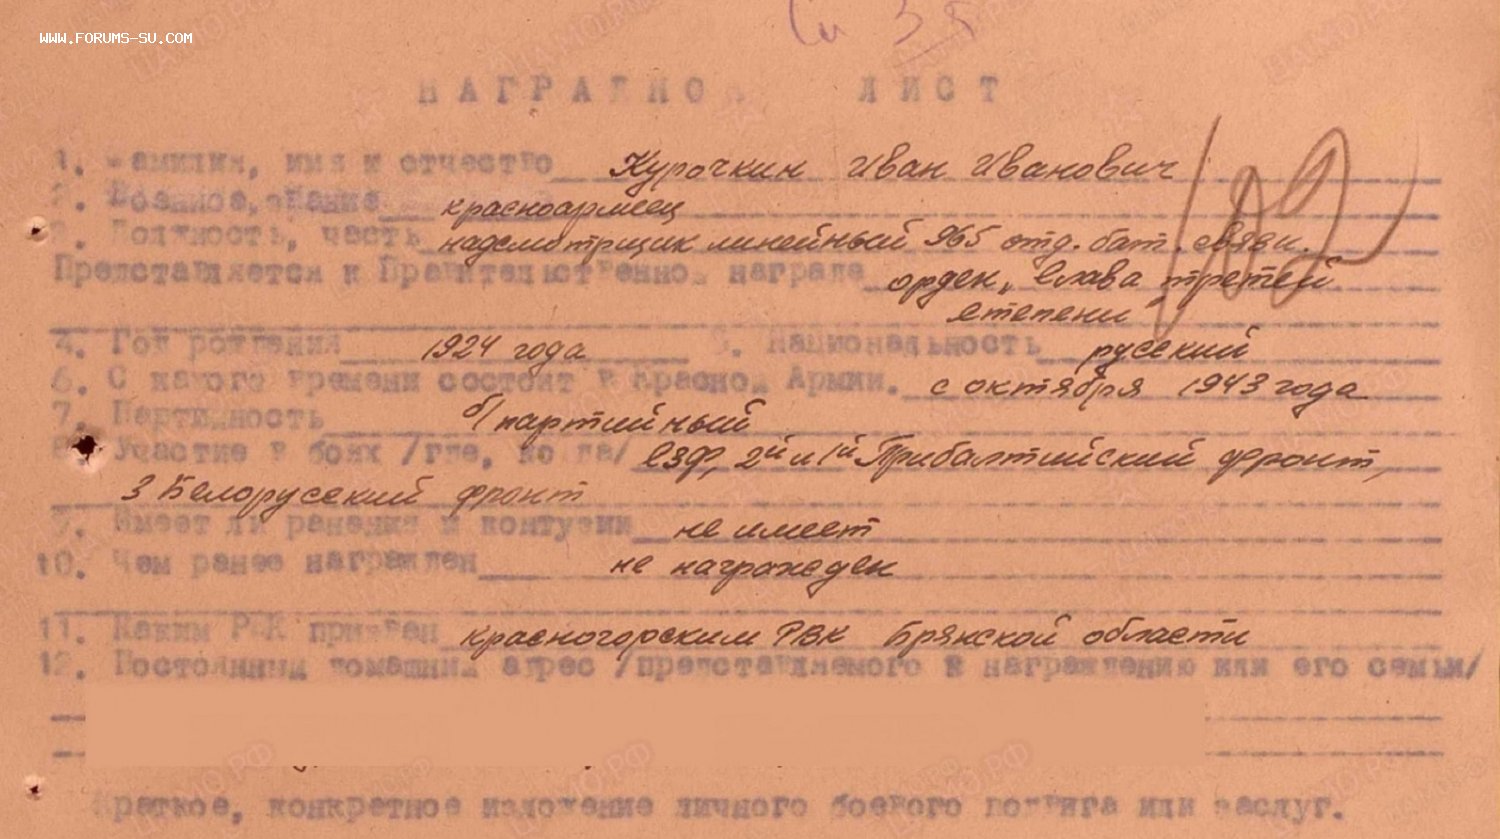 www.forums-su.com
НАГРАДНОЙ ЛИСТ
1. Фамилия, имя и отчество Курочкин Иван Иванович
2. Военное звание красноармеец
3. Должность, часть надсмотрщик линейный 965 отд. бат. связи.
Представляется к Правительственной награде орден „Слава третей
степени"
4. Год рождения 1924 года 5. Национальность русский
6. С какого времени состоит в Красной Армии. с октября 1943 года
7. Партийность б/партийный
8. Участие в боях /где, когда/ СЗФ, 2й и 1й Прибалтийский фронт,
3 Белорусский фронт
9. Имеет ли ранения и контузии не имеет
10. Чем ранее награжден не награжеден
11. Каким РВК призван Красногорским РВК Брянской области
12. Постоянный домашний адрес /представляемого к награждению или его семьи/
Краткое, конкретное изложение личного боевого подвига или заслуг.
102